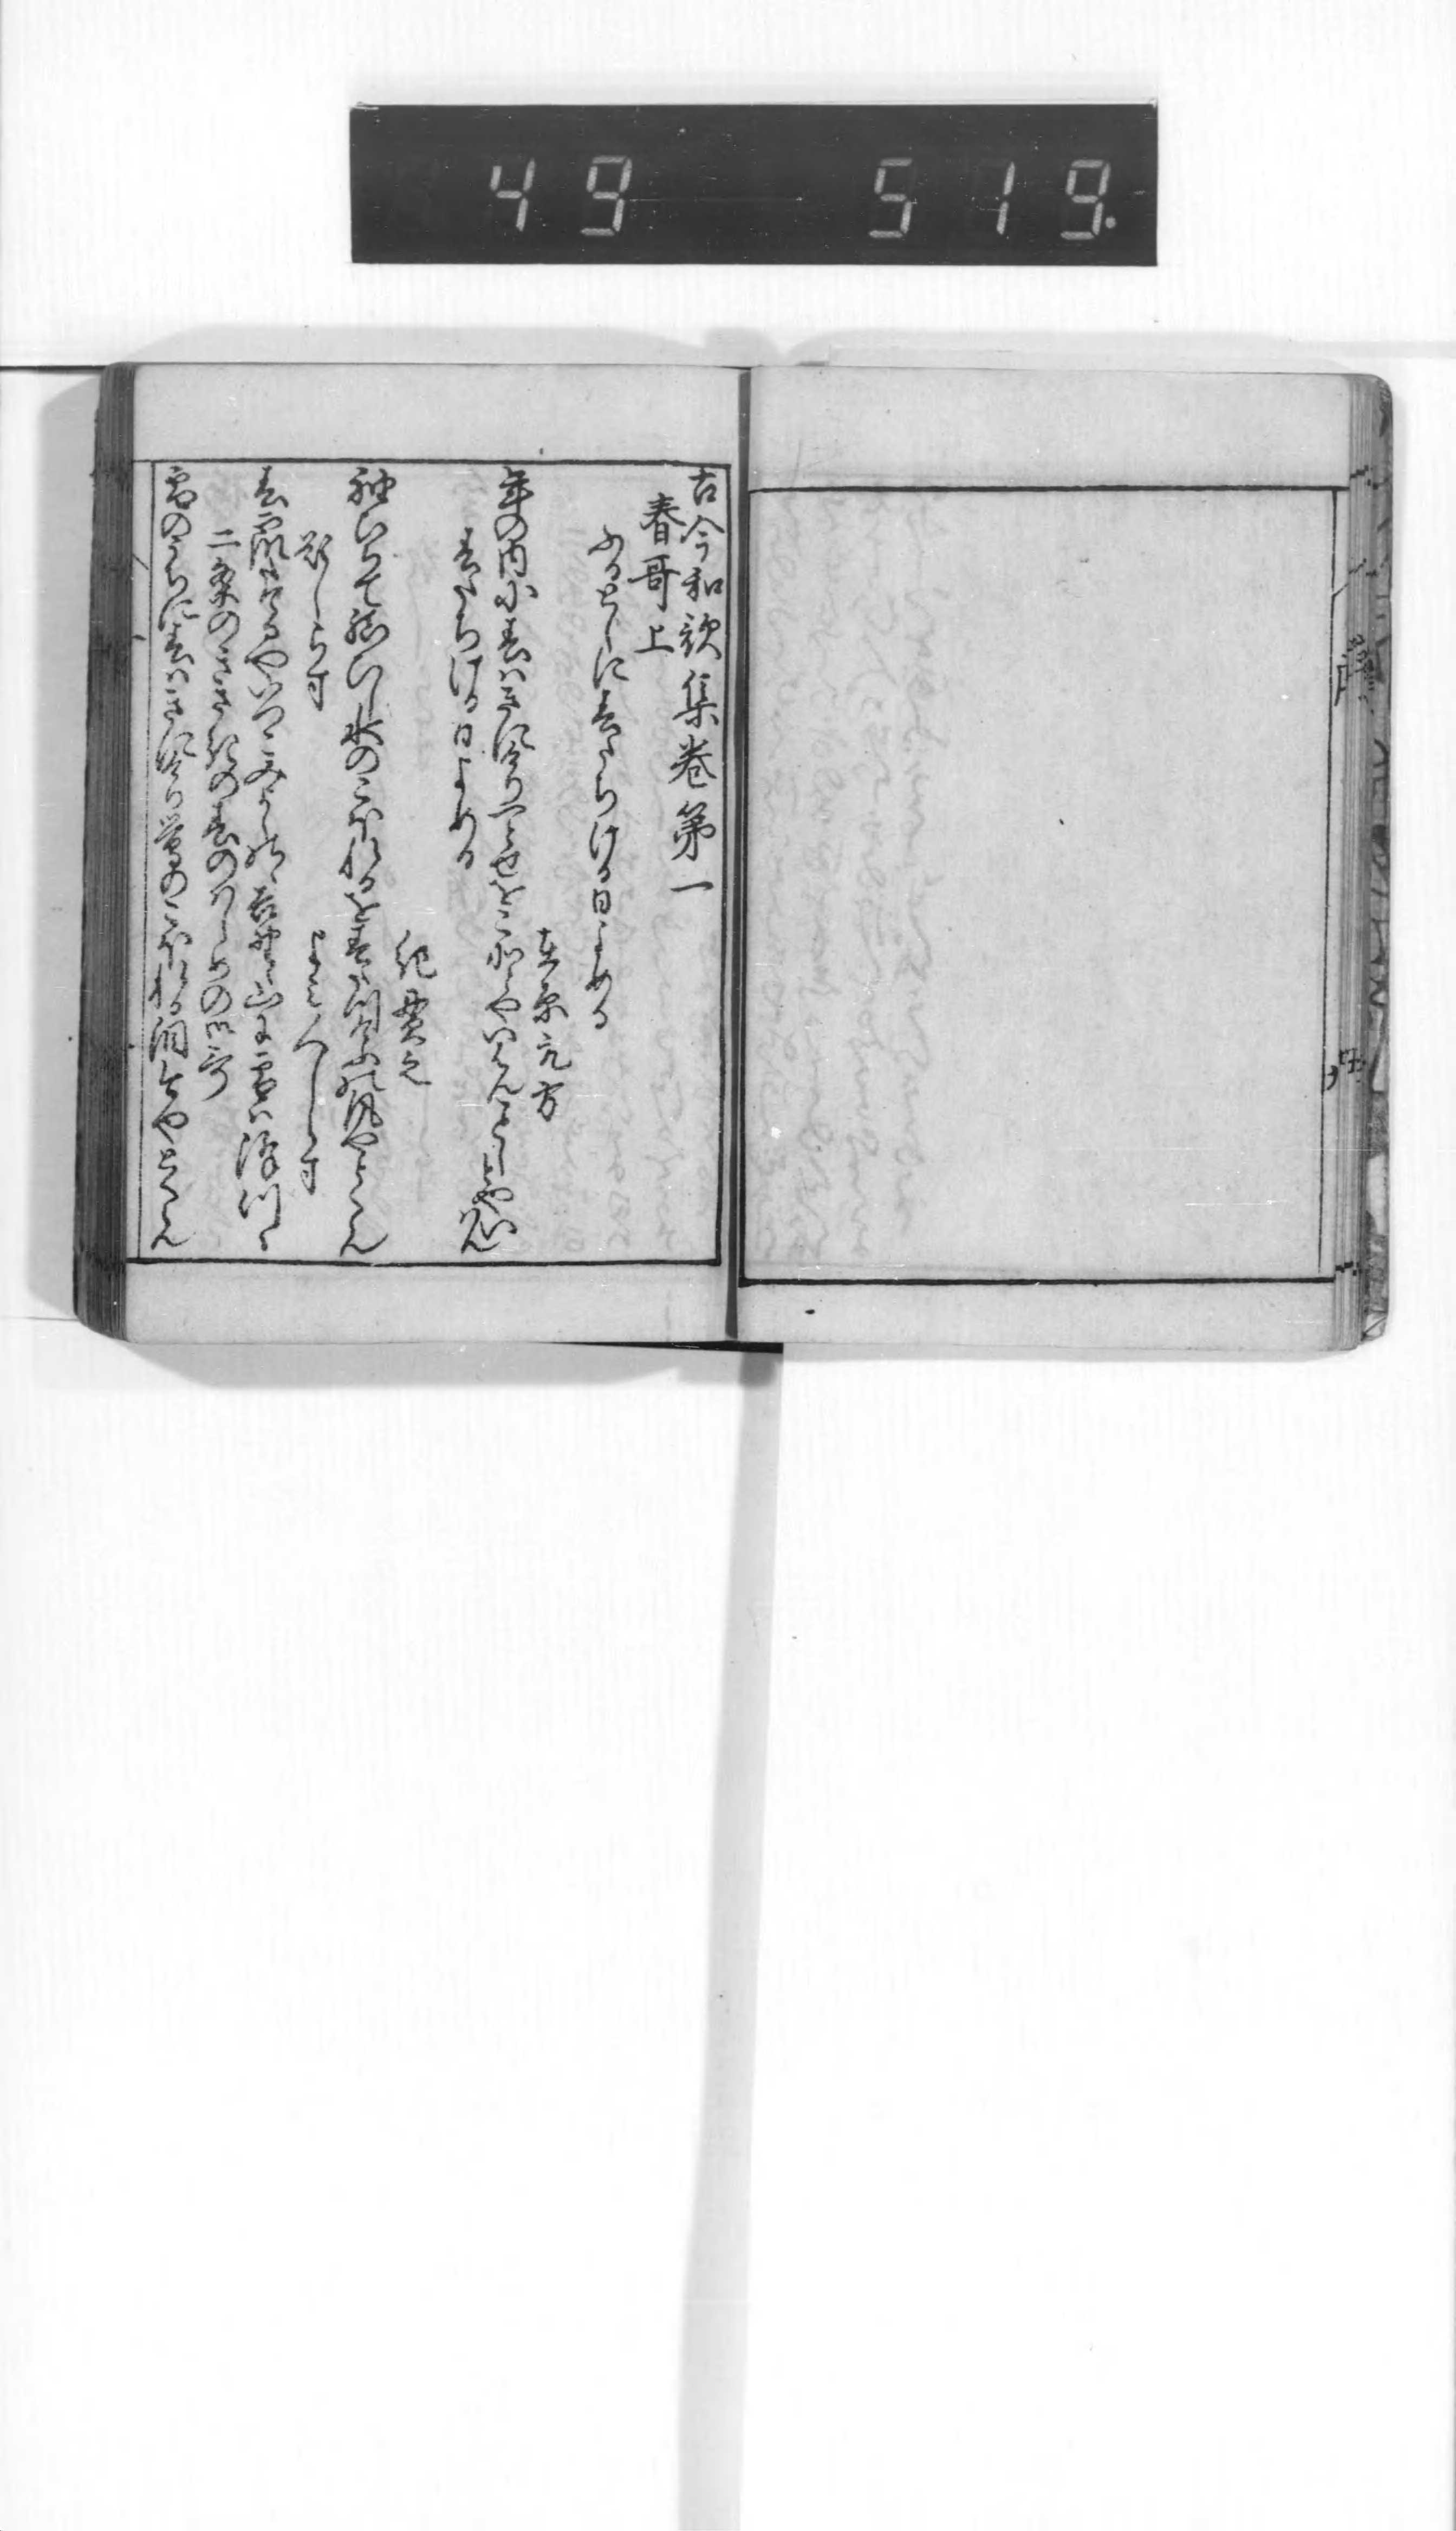 49 519.
古今和歌集巻第一
春哥上
ふるとしに春たちける日よめる
在原元方
年の内に春はきにけり一とせをこそとやいはんことしとやいはん
春たちける日よめる
紀貫之
袖ひちて結ひし水のこほれるを春立けふの風やとくらん
題しらす
よみ人しらす
春霞たてるやいつこみよしのゝ吉野の山に雪は降つゝ
二条のきさきの春のはしめの御哥
雪のうちに春はきにけり鶯のこほれる泪今やとくらん